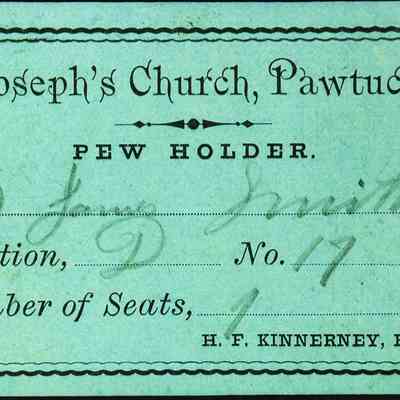 oseph's Church, Pawtuc
PEW HOLDER.
James Smith
tion, D No. 17
ber of Seats, 1
H. F. KINNERNEY,